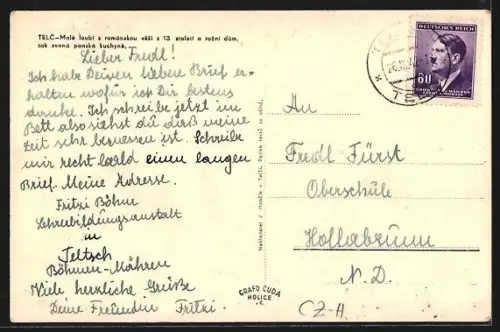 TELČ—Malé loubí s románskou věží z 13 století a rožní dům,
tak zvaná panská kuchyně.
Lieber Fredl!
Ich habe Deinen lieben Brief er-
halten wofür ich Dir bestens
danke. Ich schreibe jetzt im
Bett also siehst du daß meine
Zeit sehr bemessen ist. Schreibe
mir recht bald einen langen
Brief. Meine Adresse.
Fritzi Böhm
Lehrerbildungsanstalt
in
Teltsch
Böhmen-Mähren
Viele herzliche Grüße
Deine Freundin Fritzi.
GRAFO ČUDA
HOLICE
Nakladatel J. v Telči.
DEUTSCHES REICH
60
BÖHMEN UND MÄHREN
TEL
An
Fredl Fürst
Oberschule
Hollabrunn
N.D.
CZ-H